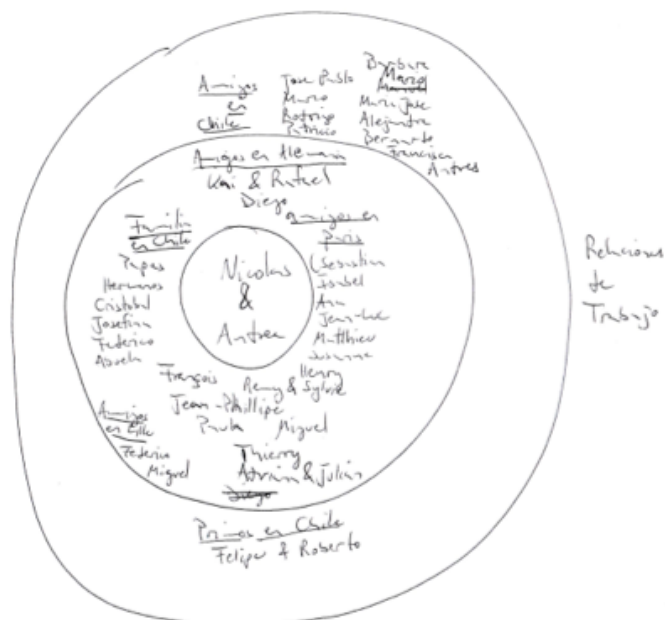 Amigos
en
Chile
Jose Pablo
Mario
Rodrigo
Patricio
Barbara
Mario
Maria Jose
Alejandra
Bernardo
Francisca
Andres
Amigos en Alemania
Kai & Rafael
Diego
Familia
en Chile
Papas
Hermanos
Cristobal
Josefina
Federico
Abuela
Nicolas
&
Andrea
amigos en
Paris
Sebastian
Isabel
Ana
Jean-Luc
Matthieu
Susanne
Henry
Remy & Sylvie
François
Jean-Phillipe
Paula
Miguel
Amigos
en Lille
Federico
Miguel
Thierry
Adrian & Julian
Diego
Primos en Chile
Felipe & Roberto
Relaciones
de
Trabajo